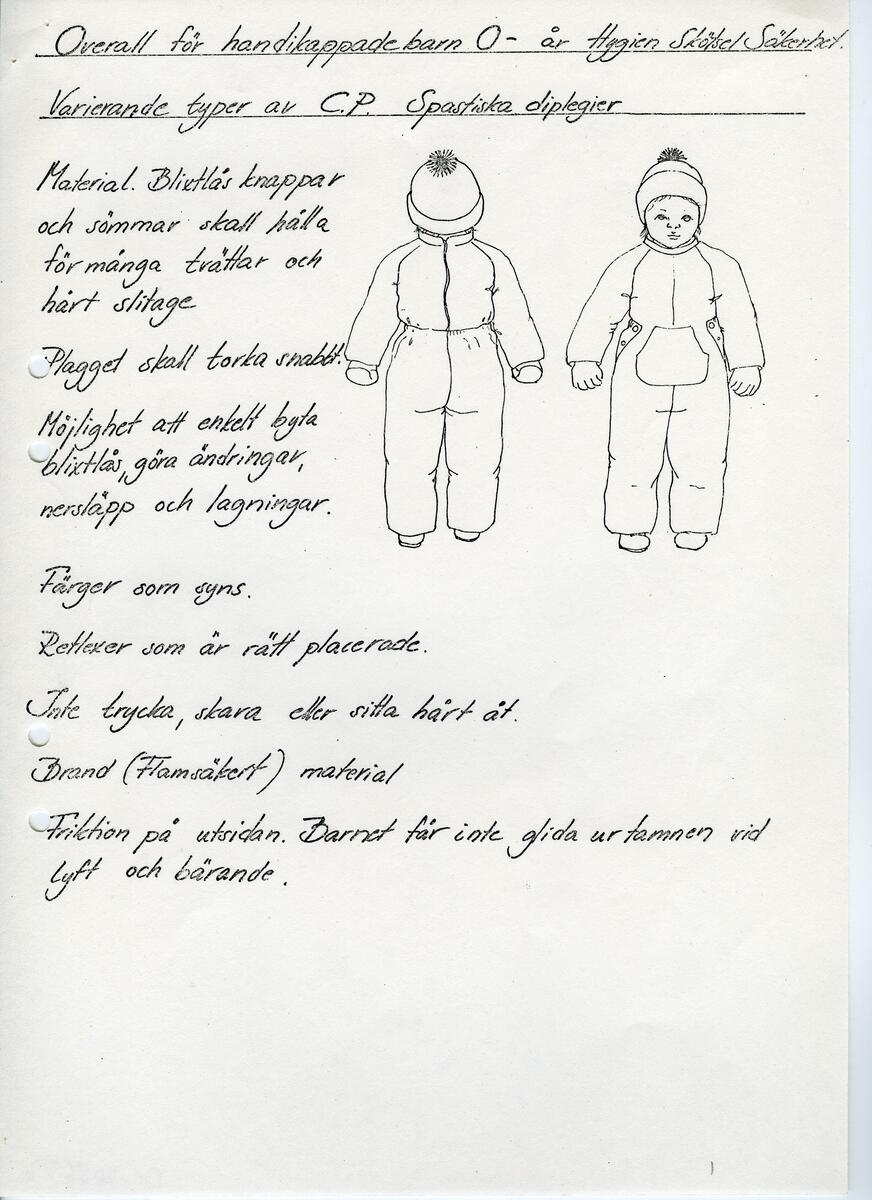 Overall för handikappade barn 0- år Hygien Skötsel Säkerhet.
Varierande typer av C.P. Spastiska diplegier
Material. Blixtlås knappar
och sömmar skall hålla
för många tvättar och
hårt slitage
Plagget skall torka snabbt.
Möjlighet att enkelt byta
blixtlås, göra ändringar,
nersläpp och lagningar.
Färger som syns.
Reflexer som är rätt placerade.
Inte trycka, skava eller sitta hårt åt.
Brand (Flamsäkert) material
Friktion på utsidan. Barnet får inte glida ur famnen vid
lyft och bärande.
1